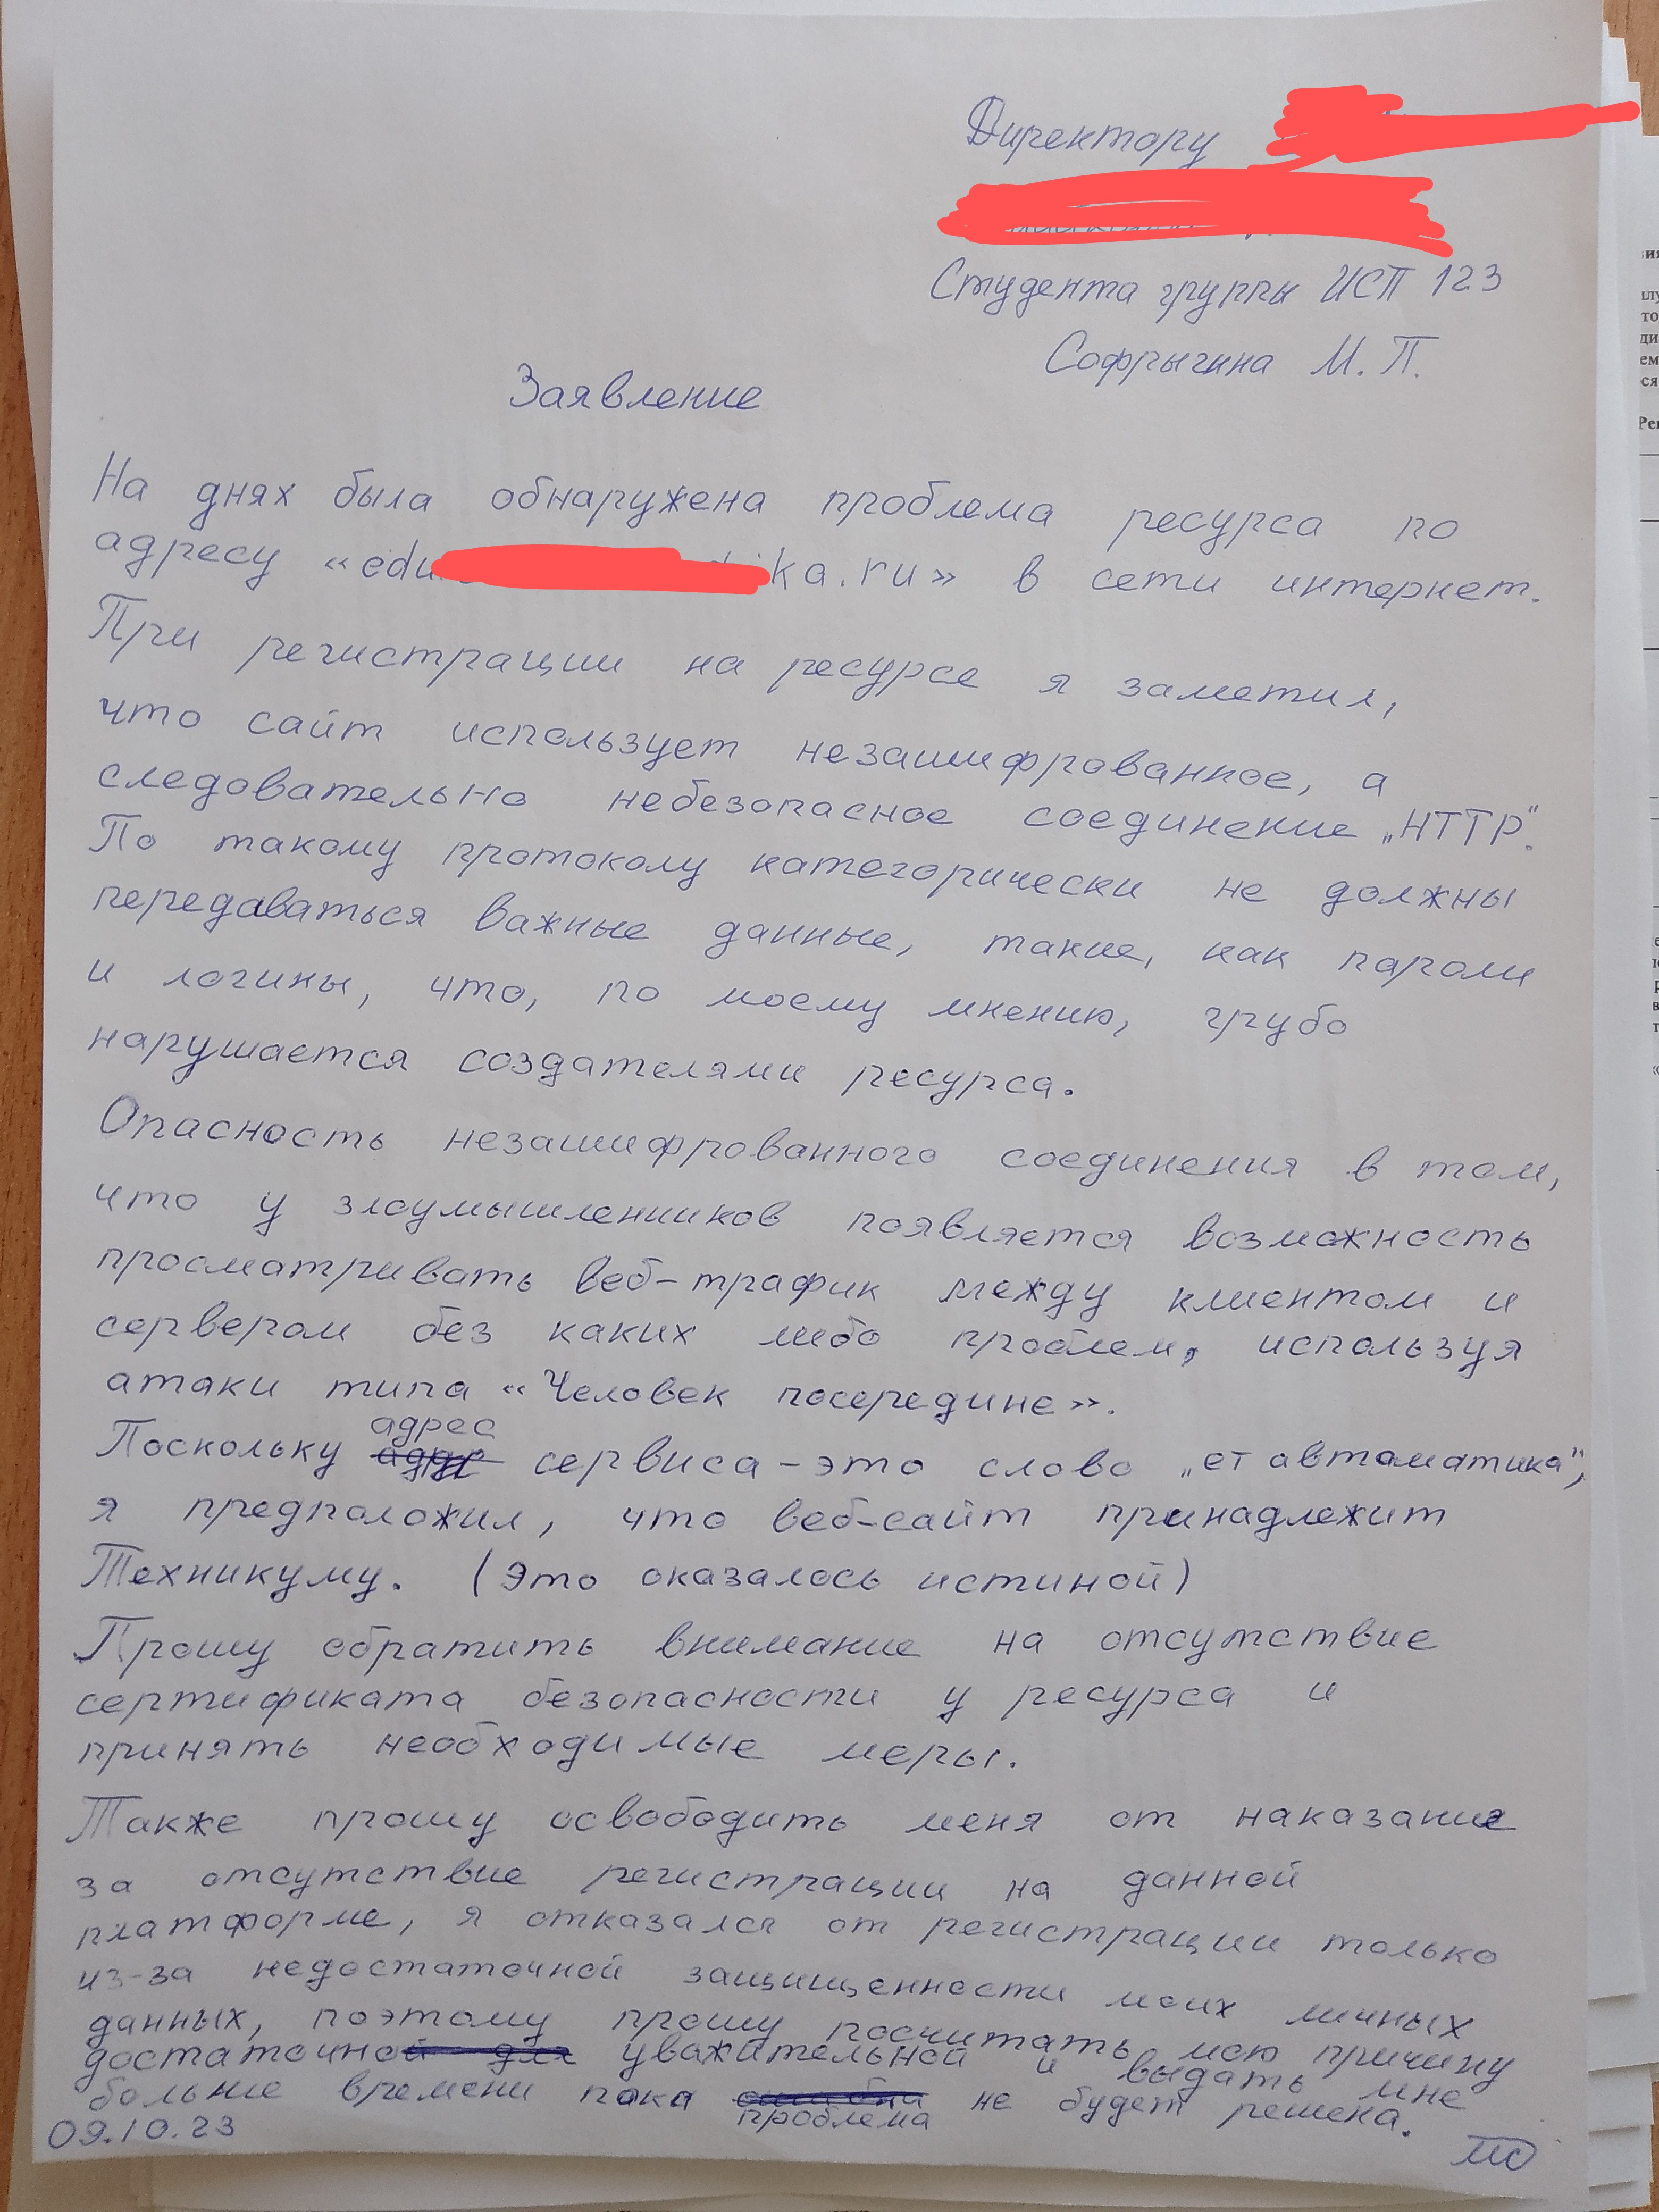 Директору
Студента группы ИСП 123
Софрыгина М. П.
Заявление
На днях была обнаружена проблема ресурса по
адресу «edu ka.ru» в сети интернет.
При регистрации на ресурсе я заметил,
что сайт использует незашифрованное, а
следовательно небезопасное соединение „HTTP".
По такому протоколу категорически не должны
передаваться важные данные, такие, как пароли
и логины, что, по моему мнению, грубо
нарушается создателями ресурса.
Опасность незашифрованного соединения в том,
что у злоумышленников появляется возможность
просматривать веб-трафик между клиентом и
сервером без каких либо проблем, используя
атаки типа «Человек посередине».
Поскольку адрес сервиса - это слово „ет автоматика",
я предположил, что веб-сайт принадлежит
Техникуму. (Это оказалось истиной)
Прошу обратить внимание на отсутствие
сертификата безопасности у ресурса и
принять необходимые меры.
Также прошу освободить меня от наказание
за отсутствие регистрации на данной
платформе, я отказался от регистрации только
из-за недостаточной защищенности моих личных
данных, поэтому прошу посчитать мою причину
достаточно уважительной и выдать мне
больше времени пока проблема не будет решена.
09.10.23